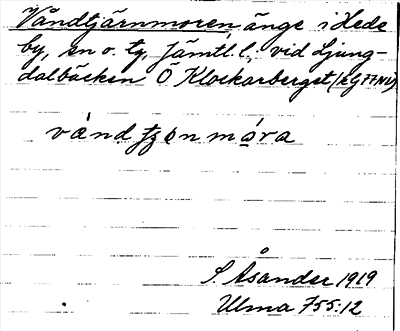 Våndtjärnmoren änge i Hede
by, sn o. tg, Jämtl. l., vid Ljung-
dalbäcken Ö Klockarberget
vånd tjø̨n møra
S. Åsander 1919
Ulma 755:12